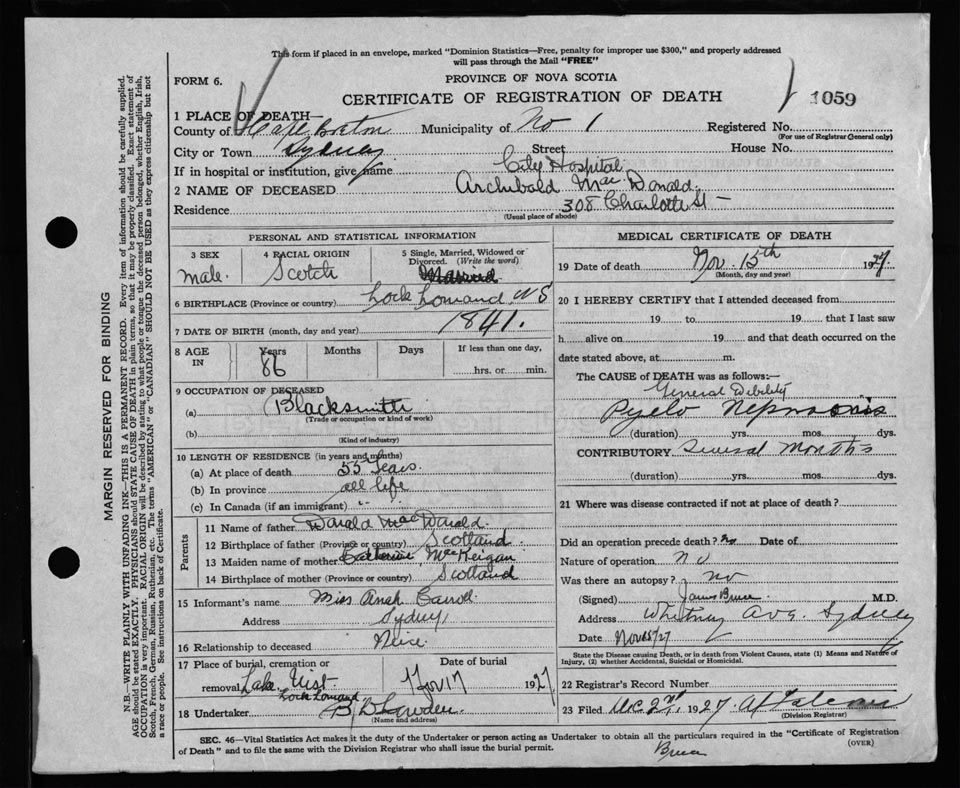 This form if placed in an envelope, marked "Dominion Statistics—Free, penalty for improper use $300," and properly addressed
will pass through the Mail "FREE"
FORM 6.
PROVINCE OF NOVA SCOTIA
CERTIFICATE OF REGISTRATION OF DEATH
1059
1 PLACE OF DEATH—
County of Cape Breton Municipality of No 1 Registered No.
(For use of Registrar General only)
City or Town Sydney Street House No.
If in hospital or institution, give name City Hospital
2 NAME OF DECEASED Archibald MacDonald
Residence 308 Charlotte St
(Usual place of abode)
PERSONAL AND STATISTICAL INFORMATION
3 SEX
male.
4 RACIAL ORIGIN
Scotch
5 Single, Married, Widowed or
Divorced. (Write the word)
6 BIRTHPLACE (Province or country) Lock Lomand NS
7 DATE OF BIRTH (month, day and year) 1841.
8 AGE IN
Years Months Days If less than one day,
86 hrs. or min.
9 OCCUPATION OF DECEASED
(a) Blacksmith
(Trade or occupation or kind of work)
(b)
(Kind of industry)
10 LENGTH OF RESIDENCE (in years and months)
(a) At place of death 55 Years.
(b) In province all life
(c) In Canada (if an immigrant) " "
Parents
11 Name of father Donald MacDonald.
12 Birthplace of father (Province or country) Scotland
13 Maiden name of mother Catherine McKeigan
14 Birthplace of mother (Province or country) Scotland
15 Informant's name Miss Carroll
Address Sydney
16 Relationship to deceased Neice
17 Place of burial, cremation or Date of burial
removal Lake Uist Nov 17 1927
Lock Lomand
18 Undertaker
(Name and address)
MEDICAL CERTIFICATE OF DEATH
19 Date of death Nov. 15th 1927.
(Month, day and year)
20 I HEREBY CERTIFY that I attended deceased from
19 to 19 that I last saw
h alive on 19 and that death occurred on the
date stated above, at m.
The CAUSE of DEATH was as follows:—
General Debility
Pyelo
(duration) yrs. mos. dys.
CONTRIBUTORY Several months
(duration) yrs. mos. dys.
21 Where was disease contracted if not at place of death?
Did an operation precede death? no Date of
Nature of operation no
Was there an autopsy? no
(Signed) James Bruce M.D.
Address Whitney Ave. Sydney
Date
State the Disease causing Death, or in death from Violent Causes, state (1) Means and Nature of
Injury, (2) whether Accidental, Suicidal or Homicidal.
22 Registrar's Record Number
23 Filed 1927
(Division Registrar)
SEC. 46—Vital Statistics Act makes it the duty of the Undertaker or person acting as Undertaker to obtain all the particulars required in the "Certificate of Registration
of Death" and to file the same with the Division Registrar who shall issue the burial permit.
(OVER)
Bruce
MARGIN RESERVED FOR BINDING
N.B.—WRITE PLAINLY WITH UNFADING INK—THIS IS A PERMANENT RECORD. Every item of information should be carefully supplied.
AGE should be stated EXACTLY. PHYSICIANS should STATE CAUSE OF DEATH in plain terms, so that it may be properly classified. Exact statement of
OCCUPATION is very important. RACIAL ORIGIN will be described by stating to what people or tongue the deceased person belonged, whether English, Irish,
Scotch, French, German, Russian, Ruthenian, etc. The terms "AMERICAN" or "CANADIAN" SHOULD NOT BE USED as they express citizenship but not
a race or people. See instructions on back of Certificate.